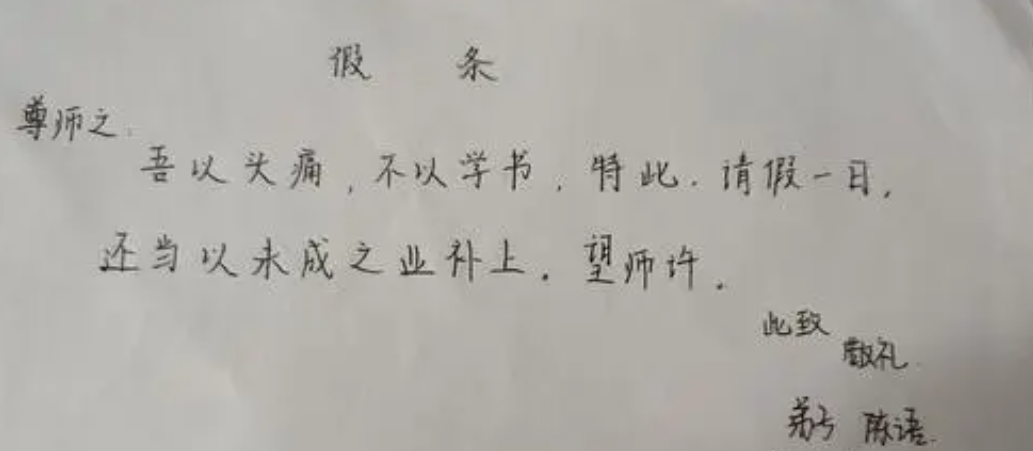 假 条
尊师之:
吾以头痛,不以学书,特此.请假一日,
还当以未成之业补上.望师许.
此致
敬礼.
弟子 陈语.